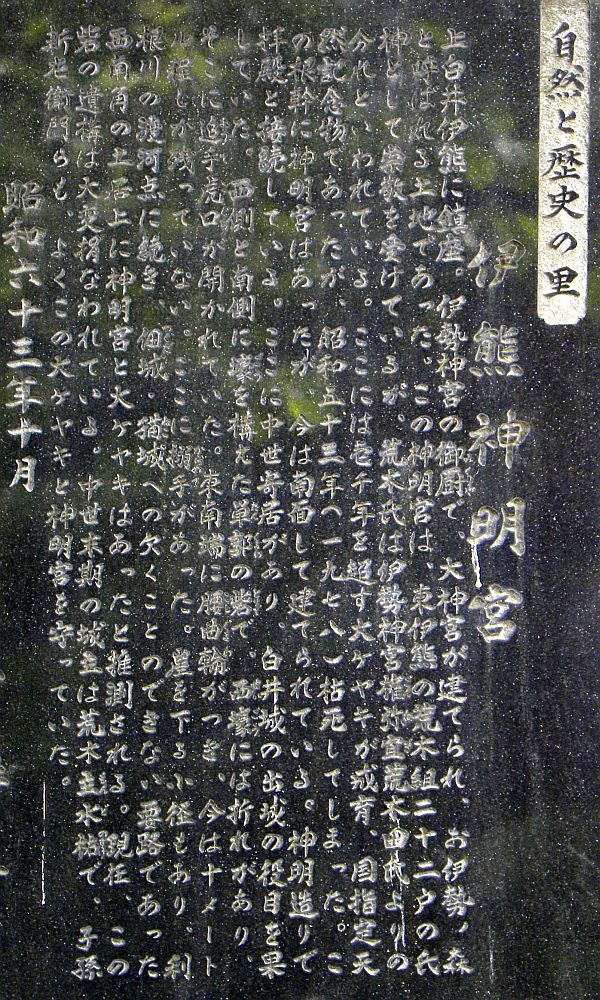 自然と歴史の里
伊熊神明宮
上白井伊熊に鎮座。伊勢神宮の御厨で、大神宮が建てられ、お伊勢ノ森
と呼ばれる土地であった。この神明宮は、東伊熊の荒木組二十二戸の氏
神として崇敬を受けているが、荒木氏は伊勢神宮権祢宜荒木田氏よりの
分れといわれている。ここには壱千年を超す大ケヤキが成育、国指定天
然記念物であったが、昭和五十三年(一九七八)枯死してしまった。こ
の根幹に神明宮はあったが、今は南面して建てられている。神明造りで
拝殿と接続している。ここに中世寄居があり、白井城の出城の役目を果
していた。西側と南側に壕を構えた単郭の砦で、西壕には折れがあり、
そこに追手虎口が開かれていた。東南端に腰曲輪がつき、今は十メート
ル程しか残っていない。ここに搦手があった。崖を下る小径もあり、利
根川の渡河点に続き、佃城、猫城への欠くことのできない要路であった
西南角の土居上に神明宮と大ケヤキはあったと推測される。現在、この
砦の遺構は大変損なわれている。中世末期の城主は荒木主水祐で、子孫
新左衛門らも、よくこの大ケヤキと神明宮を守っていた。
昭和六十三年十月